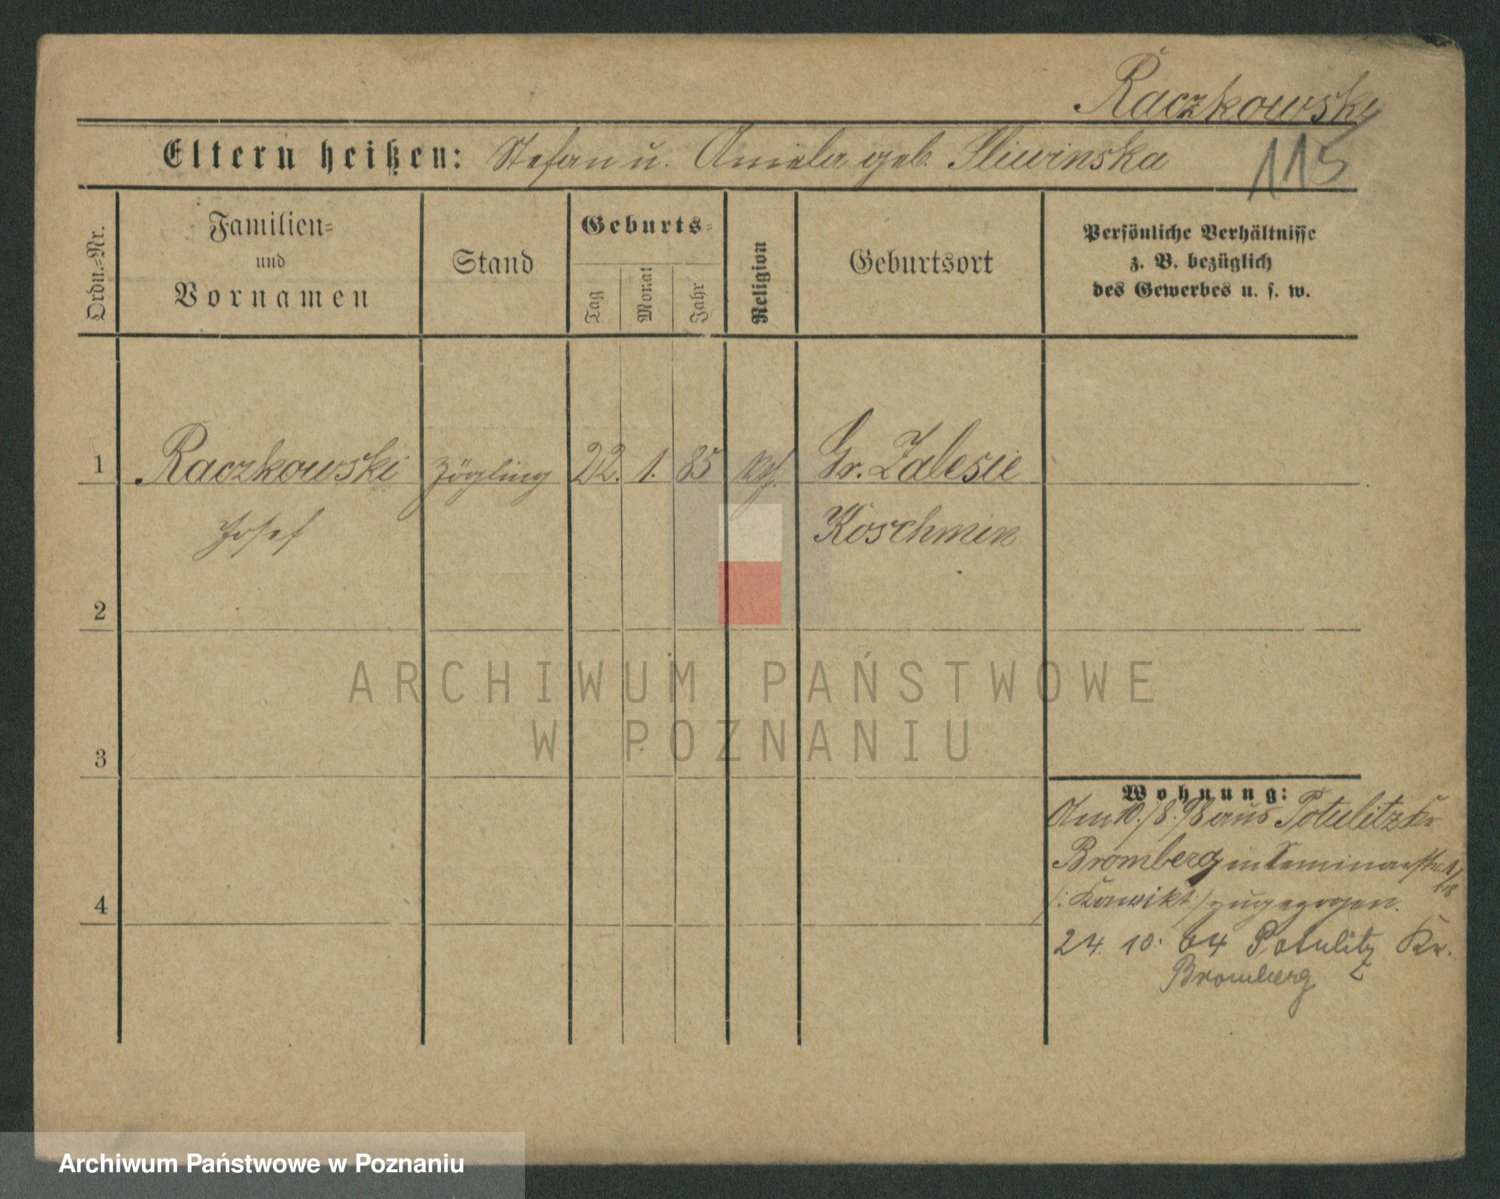 Raczkowski
Eltern heißen: Stefan u. Aniela geb. Sliwinska
115
Ordn.-Nr.
Familien-
und
Vornamen
Stand
Geburts-
Tag
Monat
Jahr
Religion
Geburtsort
Persönliche Verhältnisse
z. B. bezüglich
des Gewerbes u. s. w.
1 Raczkowski Zögling 22. 1. 85 Gr. Zalesie
Josef Koschmin
2
3
4
Wohnung:
Am 10./8. 98 aus Potulitz Kr
Bromberg in Seminarstr.
/: Konvikt :/ zugezogen.
24. 10. 04 Potulitz Kr.
Bromberg
ARCHIWUM PAŃSTWOWE
W POZNANIU
Archiwum Państwowe w Poznaniu